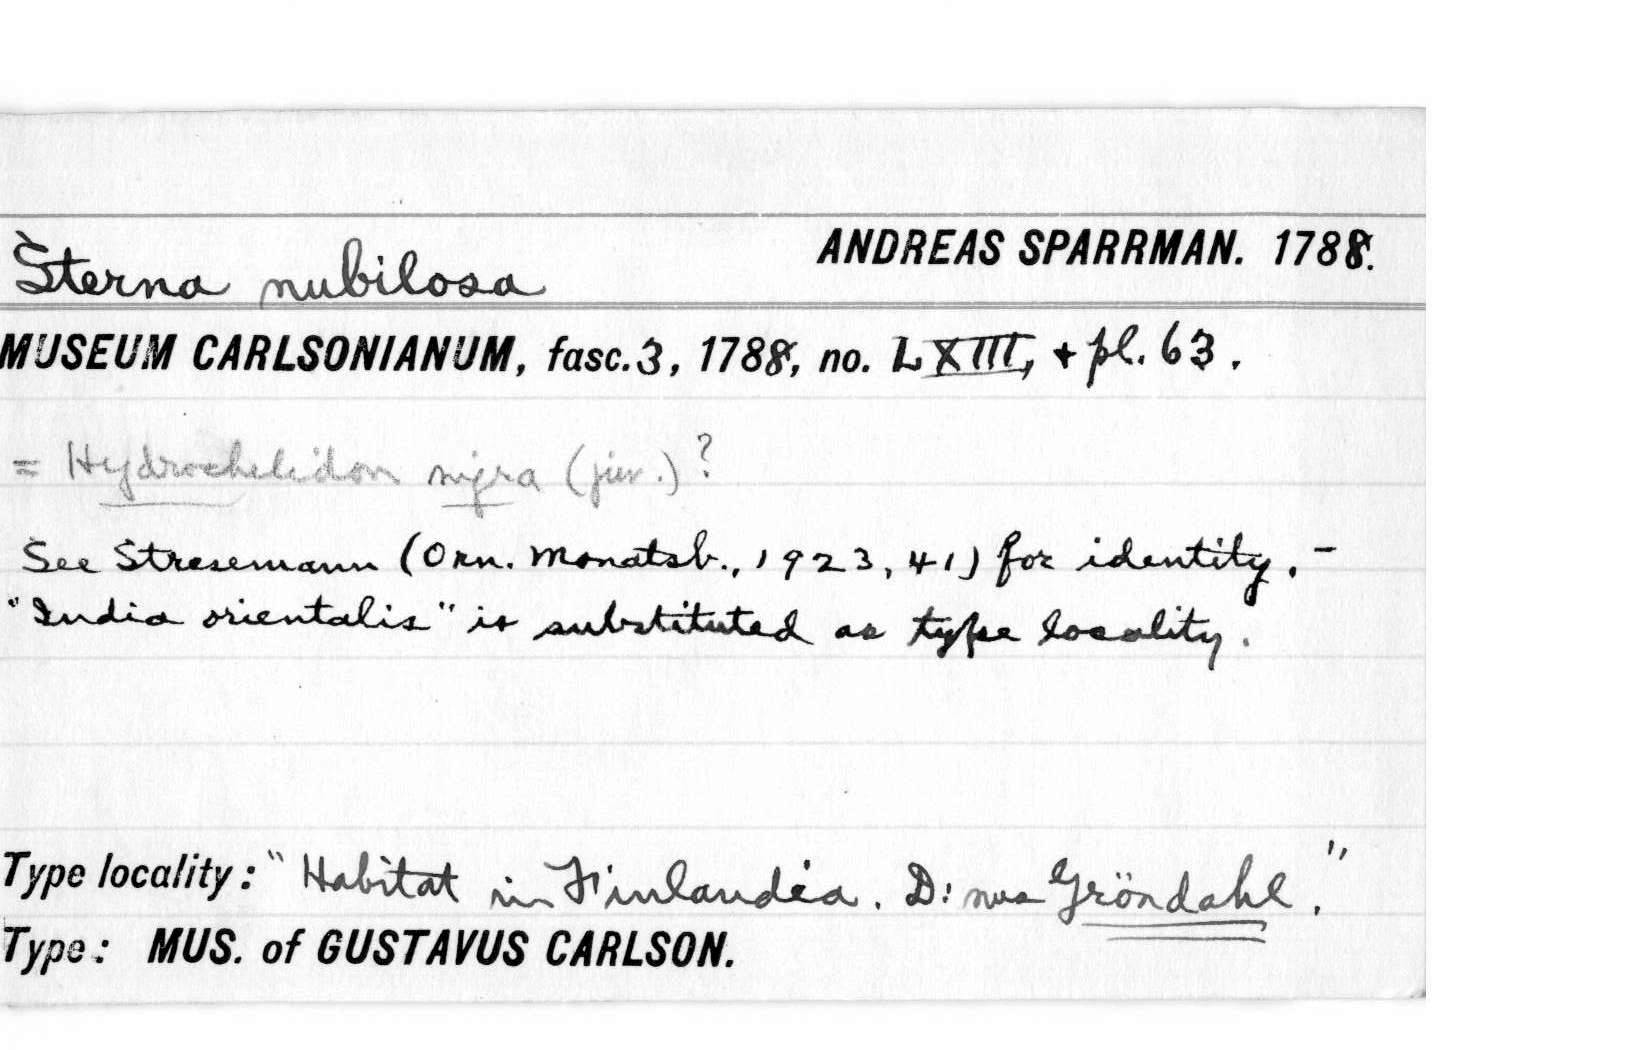 Sterna nubilosa
ANDREAS SPARRMAN. 1788.
MUSEUM CARLSONIANUM, fasc. 3, 1788, no. LXIII, + pl. 63.
= Hydrochelidon nigra (juv.)?
See Stresemann (Orn. Monatsb., 1923, 41) for identity. -
"India orientalis" is substituted as type locality.
Type locality: "Habitat in Finlandia. D:nus Gröndahl."
Type: MUS. of GUSTAVUS CARLSON.